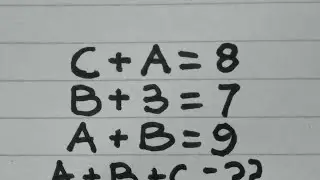 C + A = 8
B + 3 = 7
A + B = 9
A + B + C = ??